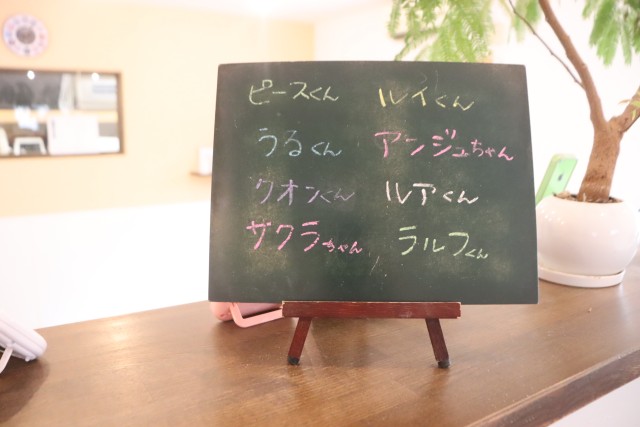 ピースくん ルイくん
うるくん アンジュちゃん
クオンくん ルアくん
サクラちゃん ラルフくん